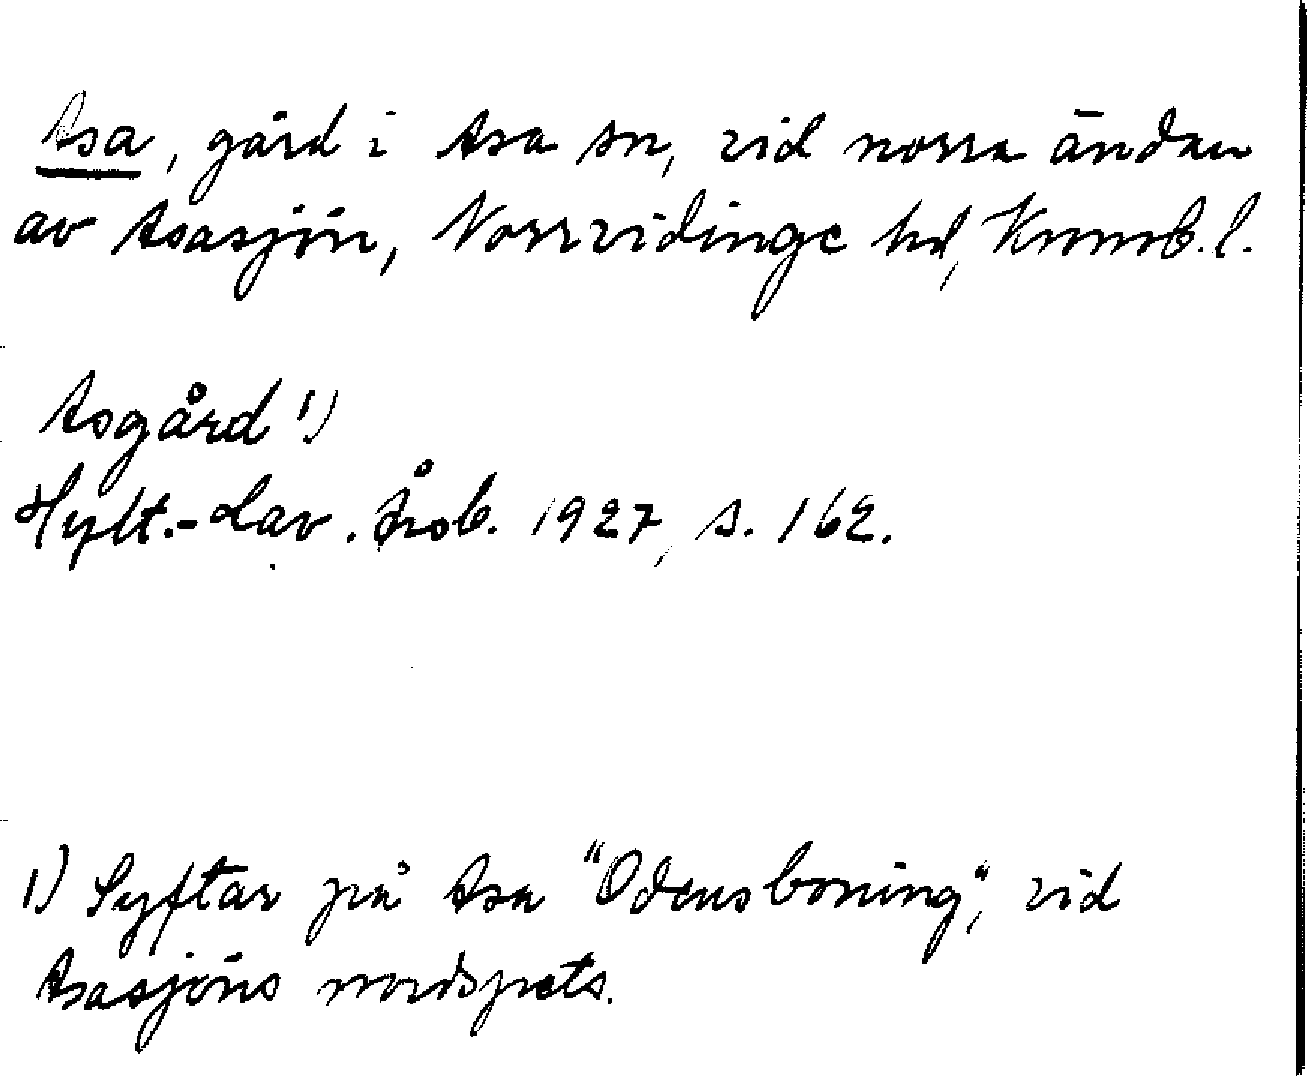 Asa, gård i Asa sn, vid norra ändan
av Asasjön, Norrvidinge hd, Kronob. l.
Asgård 1)
Hylt.-Cav. Årsb. 1927, s. 162.
1) Syftar på Asa "Odensboning", vid
Asasjöns nordspets.